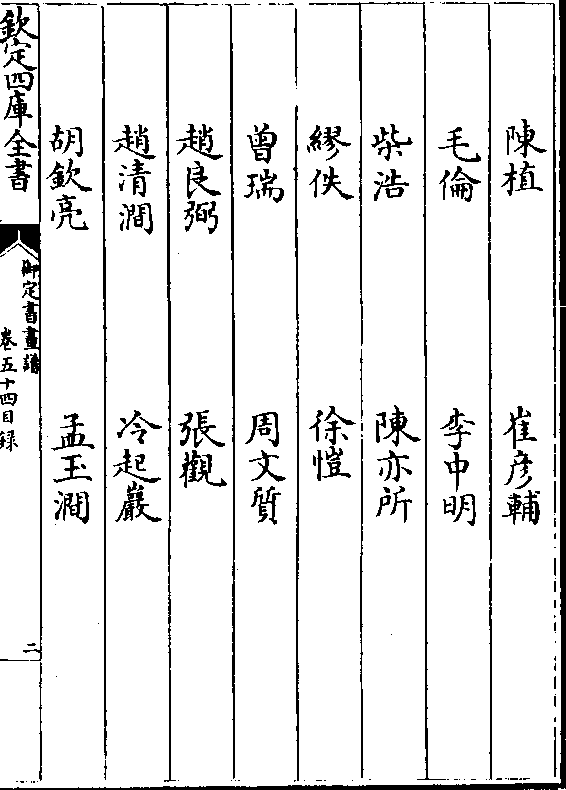 陳植　崔彦輔
毛倫　李申明
柴浩　陳亦所
繆佚　徐愷
曾瑞　周文質
趙良弼　張觀
趙清澗　冷起巖
胡欽亮　孟玉澗
欽定四庫全書
御定書畫譜
卷五十四目録
二